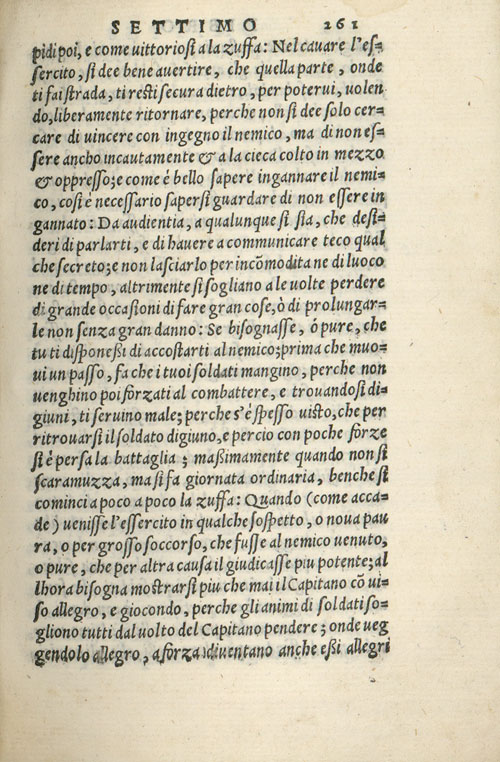 SETTIMO 261
pidi poi, e come uittoriosi a la zuffa: Nel cauare l'es=
sercito, si dee bene auertire, che quella parte, onde
ti fai strada, ti resti secura dietro, per poterui, uolen
do, liberamente ritornare, perche non si dee solo cer=
care di uincere con ingegno il nemico, ma di non es=
sere ancho incautamente & a la cieca colto in mezzo
& oppresso; e come è bello sapere ingannare il nemi=
co, cosi è necessario sapersi guardare di non essere in
gannato: Da audientia, a qualunque si sia, che desi=
deri di parlarti, e di hauere a communicare teco qual
che secreto; e non lasciarlo per incōmodita ne di luoco
ne di tempo, altrimente si sogliano a le uolte perdere
di grande occasioni di fare gran cose, ò di prolungar=
le non senza gran danno: Se bisognasse, ó pure, che
tu ti disponeßi di accostarti al nemico; prima che muo=
ui un passo, fa che i tuoi soldati mangino, perche non
uenghino poi forzati al combattere, e trouandosi di=
giuni, ti seruino male; perche s'è spesso uisto, che per
ritrouarsi il soldato digiuno, e percio con poche forze
si è persa la battaglia; maßimamente quando non si
scaramuzza, ma si fa giornata ordinaria, benche si
cominci a poco a poco la zuffa: Quando (come acca=
de) uenisse l'essercito in qualche sospetto, o noua pau
ra, o per grosso soccorso, che fusse al nemico uenuto,
o pure, che per altra causa il giudicasse piu potente; al
lhora bisogna mostrarsi piu che mai il Capitano cō ui=
so allegro, e giocondo, perche gli animi di soldati so=
gliono tutti dal uolto del Capitano pendere; onde ueg
gendolo allegro, a forza diuentano anche eßi allegri